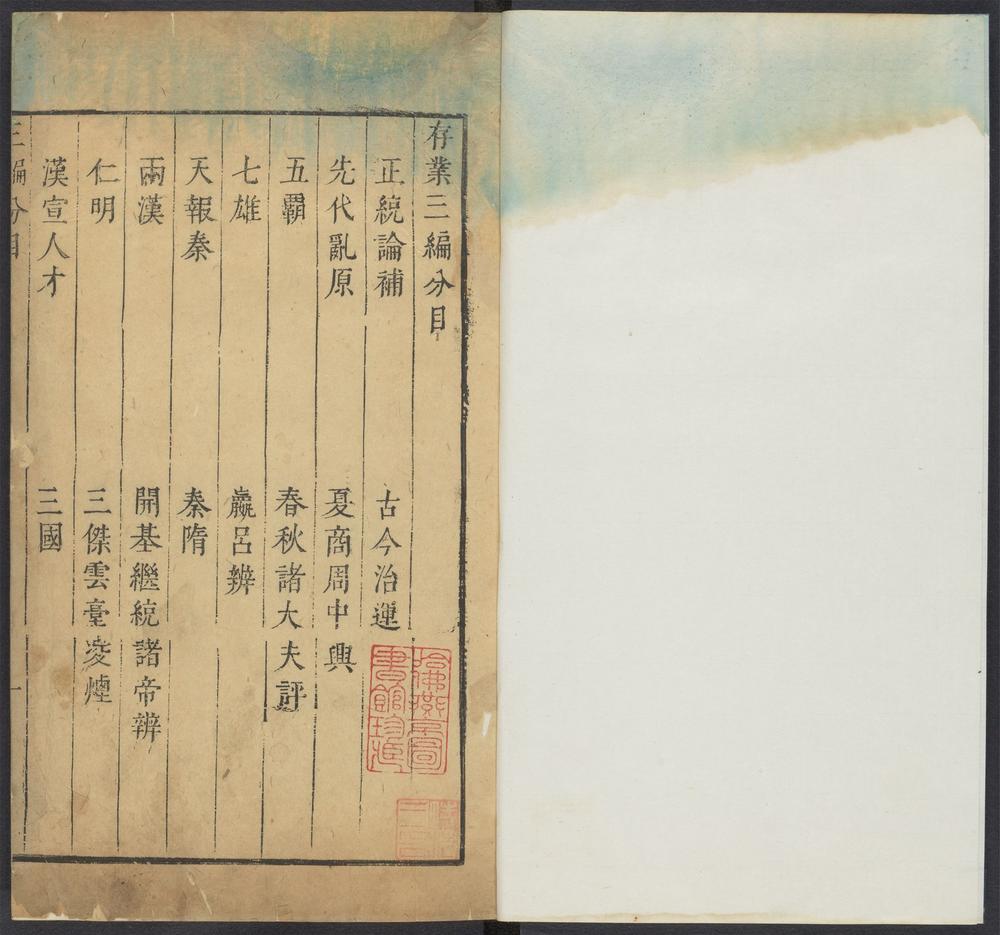 存業三編分目
正統論補　古今治運
先代亂原　夏商周中興
五霸　春秋諸大夫評
七雄　嬴呂辨
天報秦　秦隋
兩漢　開基繼統諸帝辨
仁明　三傑雲臺凌煙
漢宣人才　三國
三編分目　一
哈佛燕京圖書館珍藏